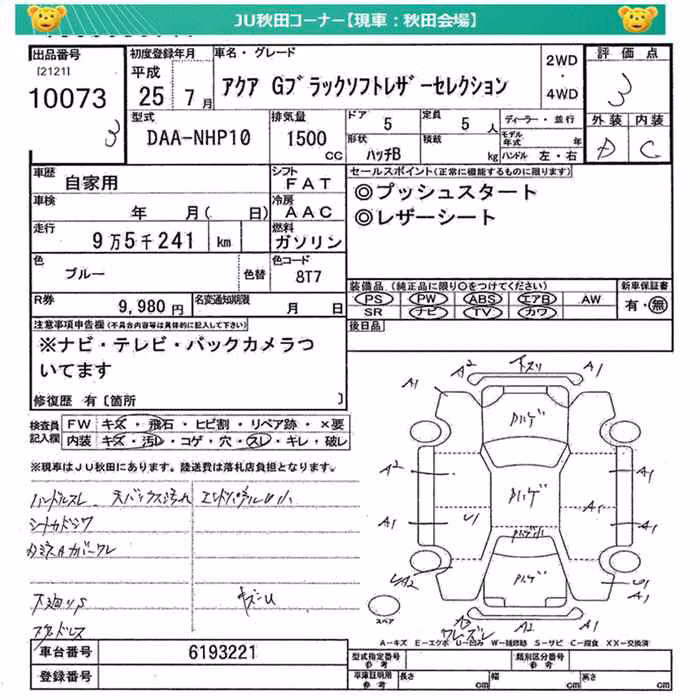 JU秋田コーナー【現車：秋田会場】
出品番号 初度登録年月 車名・グレード 2WD ・ 4WD 評価点
[2121] 10073 3
平成 25 7月
アクア Gブラックソフトレザーセレクション
3
型式 排気量 ドア 定員 ディーラー・並行 外装 内装
DAA-NHP10 1500 CC 5 5人 モデル年式 年 D C
形状 積載
ハッチB kg ハンドル 左・右
車歴 自家用 シフト FAT
セールスポイント(正常に機能するものに限ります)
◎プッシュスタート
◎レザーシート
車検 年 月( 日) 冷房 AAC
走行 9万5千241 km 燃料 ガソリン
色 ブルー 色替 色コード 8T7
装備品 (純正品に限り○をつけてください) 新車保証書
PS PW ABS エアB AW 有・無
SR ナビ TV カワ
R券 9,980円 名変通知期限 月 日
後日品
注意事項申告欄(不具合内容等は具体的に記入して下さい)
※ナビ・テレビ・バックカメラついてます
修復歴 有〔箇所 〕
検査員記入欄
FW キズ・飛石・ヒビ割・リペア跡・×要
内装 キズ・汚レ・コゲ・穴・スレ・キレ・破レ
※現車はJU秋田にあります。陸送費は落札店負担となります。
ハンドルスレ
キズ=U
A2 A1
A1
ハゲ
A2 A1
ハゲ
A1 U1 A1 A1
ハゲ
UA2 U1 A1
スペア
A2 A1
A-キズ E-エクボ U-凹み W-補修跡 S-サビ C-腐食 XX-交換済
車台番号 6193221
型式指定番号 参考 類別区分番号 参考
登録番号
車庫証明用 参考 長さ cm 幅 cm 高さ cm